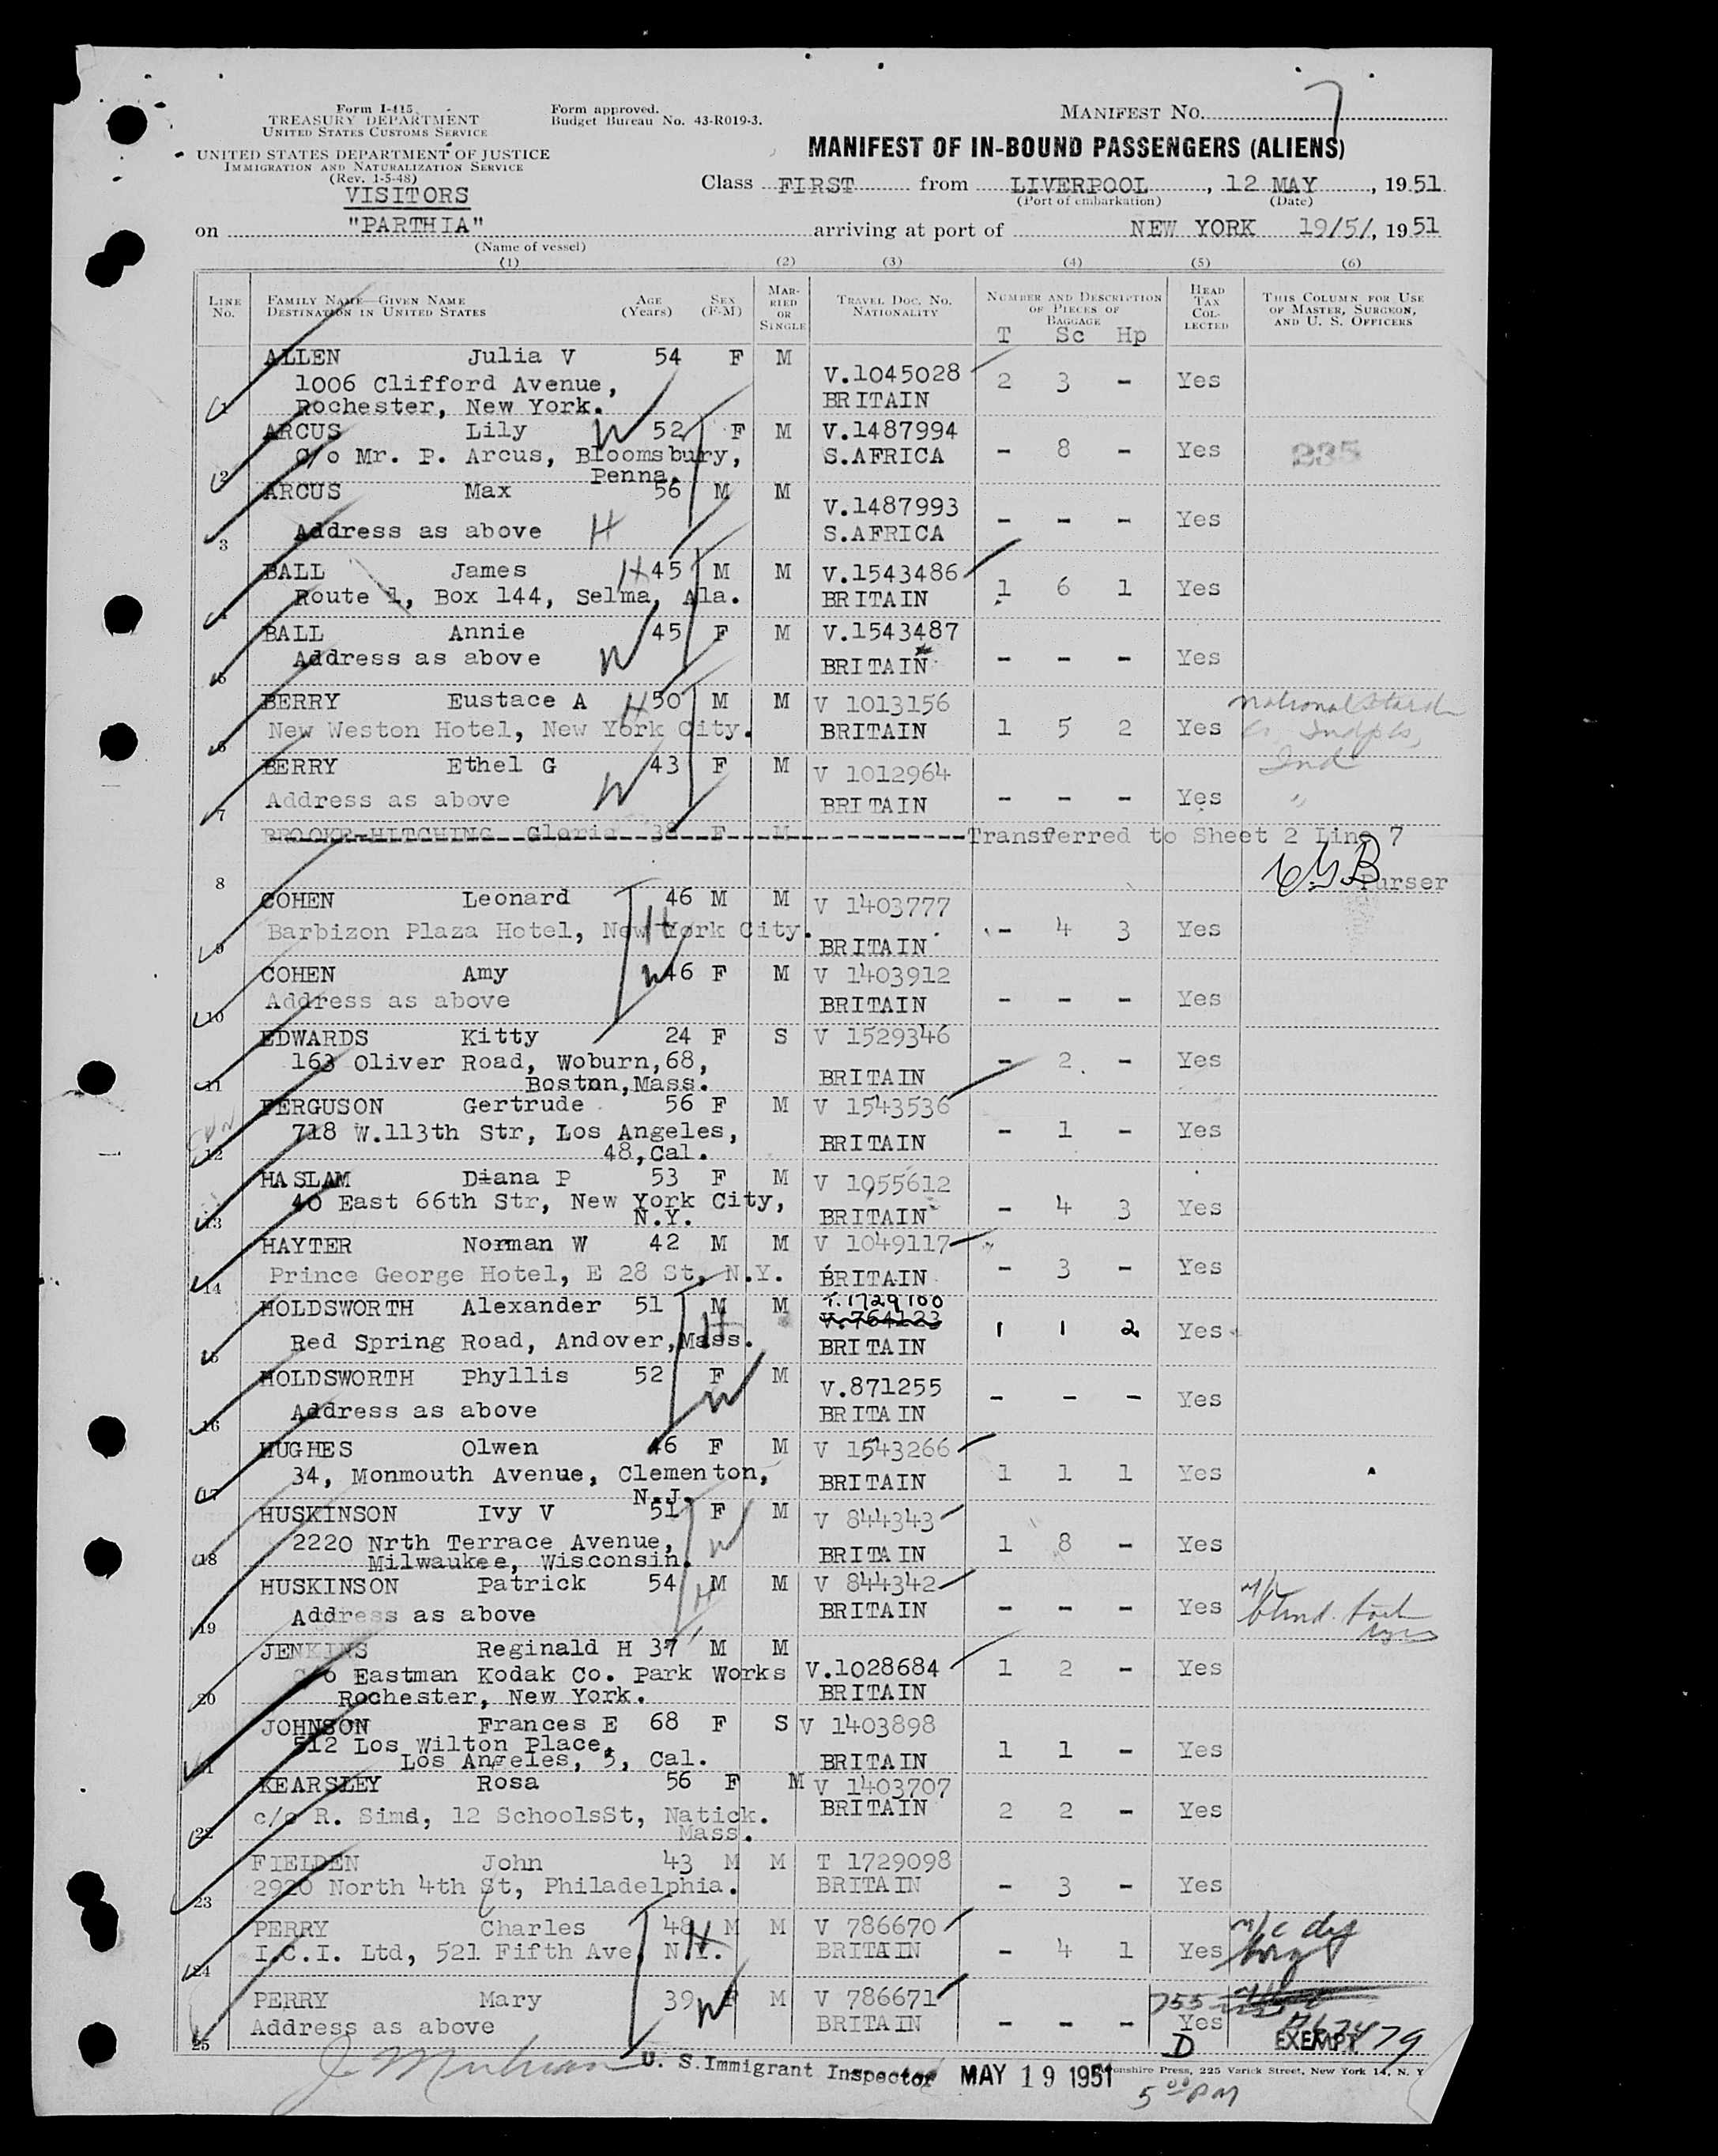 Form I-415
TREASURY DEPARTMENT
UNITED STATES CUSTOMS SERVICE
Form approved.
Budget Bureau No. 43-R019-3.
MANIFEST No. 7
UNITED STATES DEPARTMENT OF JUSTICE
IMMIGRATION AND NATURALIZATION SERVICE
(Rev. 1-5-48)
MANIFEST OF IN-BOUND PASSENGERS (ALIENS)
VISITORS
Class FIRST from LIVERPOOL, 12 MAY, 1951
(Port of embarkation) (Date)
on "PARTHIA" arriving at port of NEW YORK 19/5/, 1951
(Name of vessel)
(1) (2) (3) (4) (5) (6)
LINE No.
FAMILY NAME—GIVEN NAME
DESTINATION IN UNITED STATES
AGE (Years)
SEX (F-M)
MARRIED OR SINGLE
TRAVEL DOC. NO. NATIONALITY
NUMBER AND DESCRIPTION OF PIECES OF BAGGAGE
T Sc Hp
HEAD TAX COLLECTED
THIS COLUMN FOR USE OF MASTER, SURGEON, AND U. S. OFFICERS
1 ALLEN Julia V 54 F M V.1045028 2 3 - Yes
1006 Clifford Avenue, BRITAIN
Rochester, New York.
2 ARCUS Lily W 52 F M V.1487994 - 8 - Yes 235
c/o Mr. P. Arcus, Bloomsbury, S.AFRICA
Penna.
3 ARCUS Max 56 M M V.1487993 - - - Yes
Address as above H S.AFRICA
4 BALL James H 45 M M V.1543486 1 6 1 Yes
Route 1, Box 144, Selma, Ala. BRITAIN
5 BALL Annie 45 F M V.1543487 - - - Yes
Address as above W BRITAIN
6 BERRY Eustace A H 50 M M V 1013156 1 5 2 Yes National Starch
New Weston Hotel, New York City. BRITAIN Co. Indpls,
Ind
7 BERRY Ethel G 43 F M V 1012964 - - - Yes "
Address as above W BRITAIN
8 BROOKE-HITCHING Gloria 38 F M Transferred to Sheet 2 Line 7
Purser
9 COHEN Leonard 46 M M V 1403777 - 4 3 Yes
Barbizon Plaza Hotel, New York City. H BRITAIN
10 COHEN Amy W 46 F M V 1403912 - - - Yes
Address as above BRITAIN
11 EDWARDS Kitty 24 F S V 1529346 - 2 - Yes
163 Oliver Road, Woburn,68, BRITAIN
Boston,Mass.
12 FERGUSON Gertrude 56 F M V 1543536 - 1 - Yes
718 W.113th Str, Los Angeles, BRITAIN
48,Cal.
13 HASLAM Diana P 53 F M V 1055612 - 4 3 Yes
40 East 66th Str, New York City, BRITAIN
N.Y.
14 HAYTER Norman W 42 M M V 1049117 - 3 - Yes
Prince George Hotel, E 28 St, N.Y. BRITAIN
15 HOLDSWORTH Alexander 51 M M T.1729100 1 1 2 Yes
V.764123
Red Spring Road, Andover,Mass. H BRITAIN
16 HOLDSWORTH Phyllis 52 F M V.871255 - - - Yes
Address as above W BRITAIN
17 HUGHES Olwen 46 F M V 1543266 1 1 1 Yes
34, Monmouth Avenue, Clementon, BRITAIN
N.J.
18 HUSKINSON Ivy V 51 F M V 844343 1 8 - Yes
2220 Nrth Terrace Avenue, W BRITAIN
Milwaukee, Wisconsin.
19 HUSKINSON Patrick 54 M M V 844342 - - - Yes blind both eyes
Address as above H BRITAIN
20 JENKINS Reginald H 37 M M V.1028684 1 2 - Yes
C/o Eastman Kodak Co. Park Works BRITAIN
Rochester, New York.
21 JOHNSON Frances E 68 F S V 1403898 1 1 - Yes
512 Los Wilton Place, BRITAIN
Los Angeles, 5, Cal.
22 KEARSLEY Rosa 56 F M V 1403707 2 2 - Yes
c/o R. Sims, 12 SchoolsSt, Natick. BRITAIN
Mass.
23 FIELDEN John 43 M M T 1729098 - 3 - Yes
2920 North 4th St, Philadelphia. BRITAIN
24 PERRY Charles 48 M M V 786670 - 4 1 Yes
I.C.I. Ltd, 521 Fifth Ave, N.Y. H BRITAIN
25 PERRY Mary 39 F M V 786671 - - - Yes
Address as above W BRITAIN
755
D EXEMPT
U. S. Immigrant Inspector MAY 19 1951
Press, 225 Varick Street, New York 14, N. Y.
5 00 PM